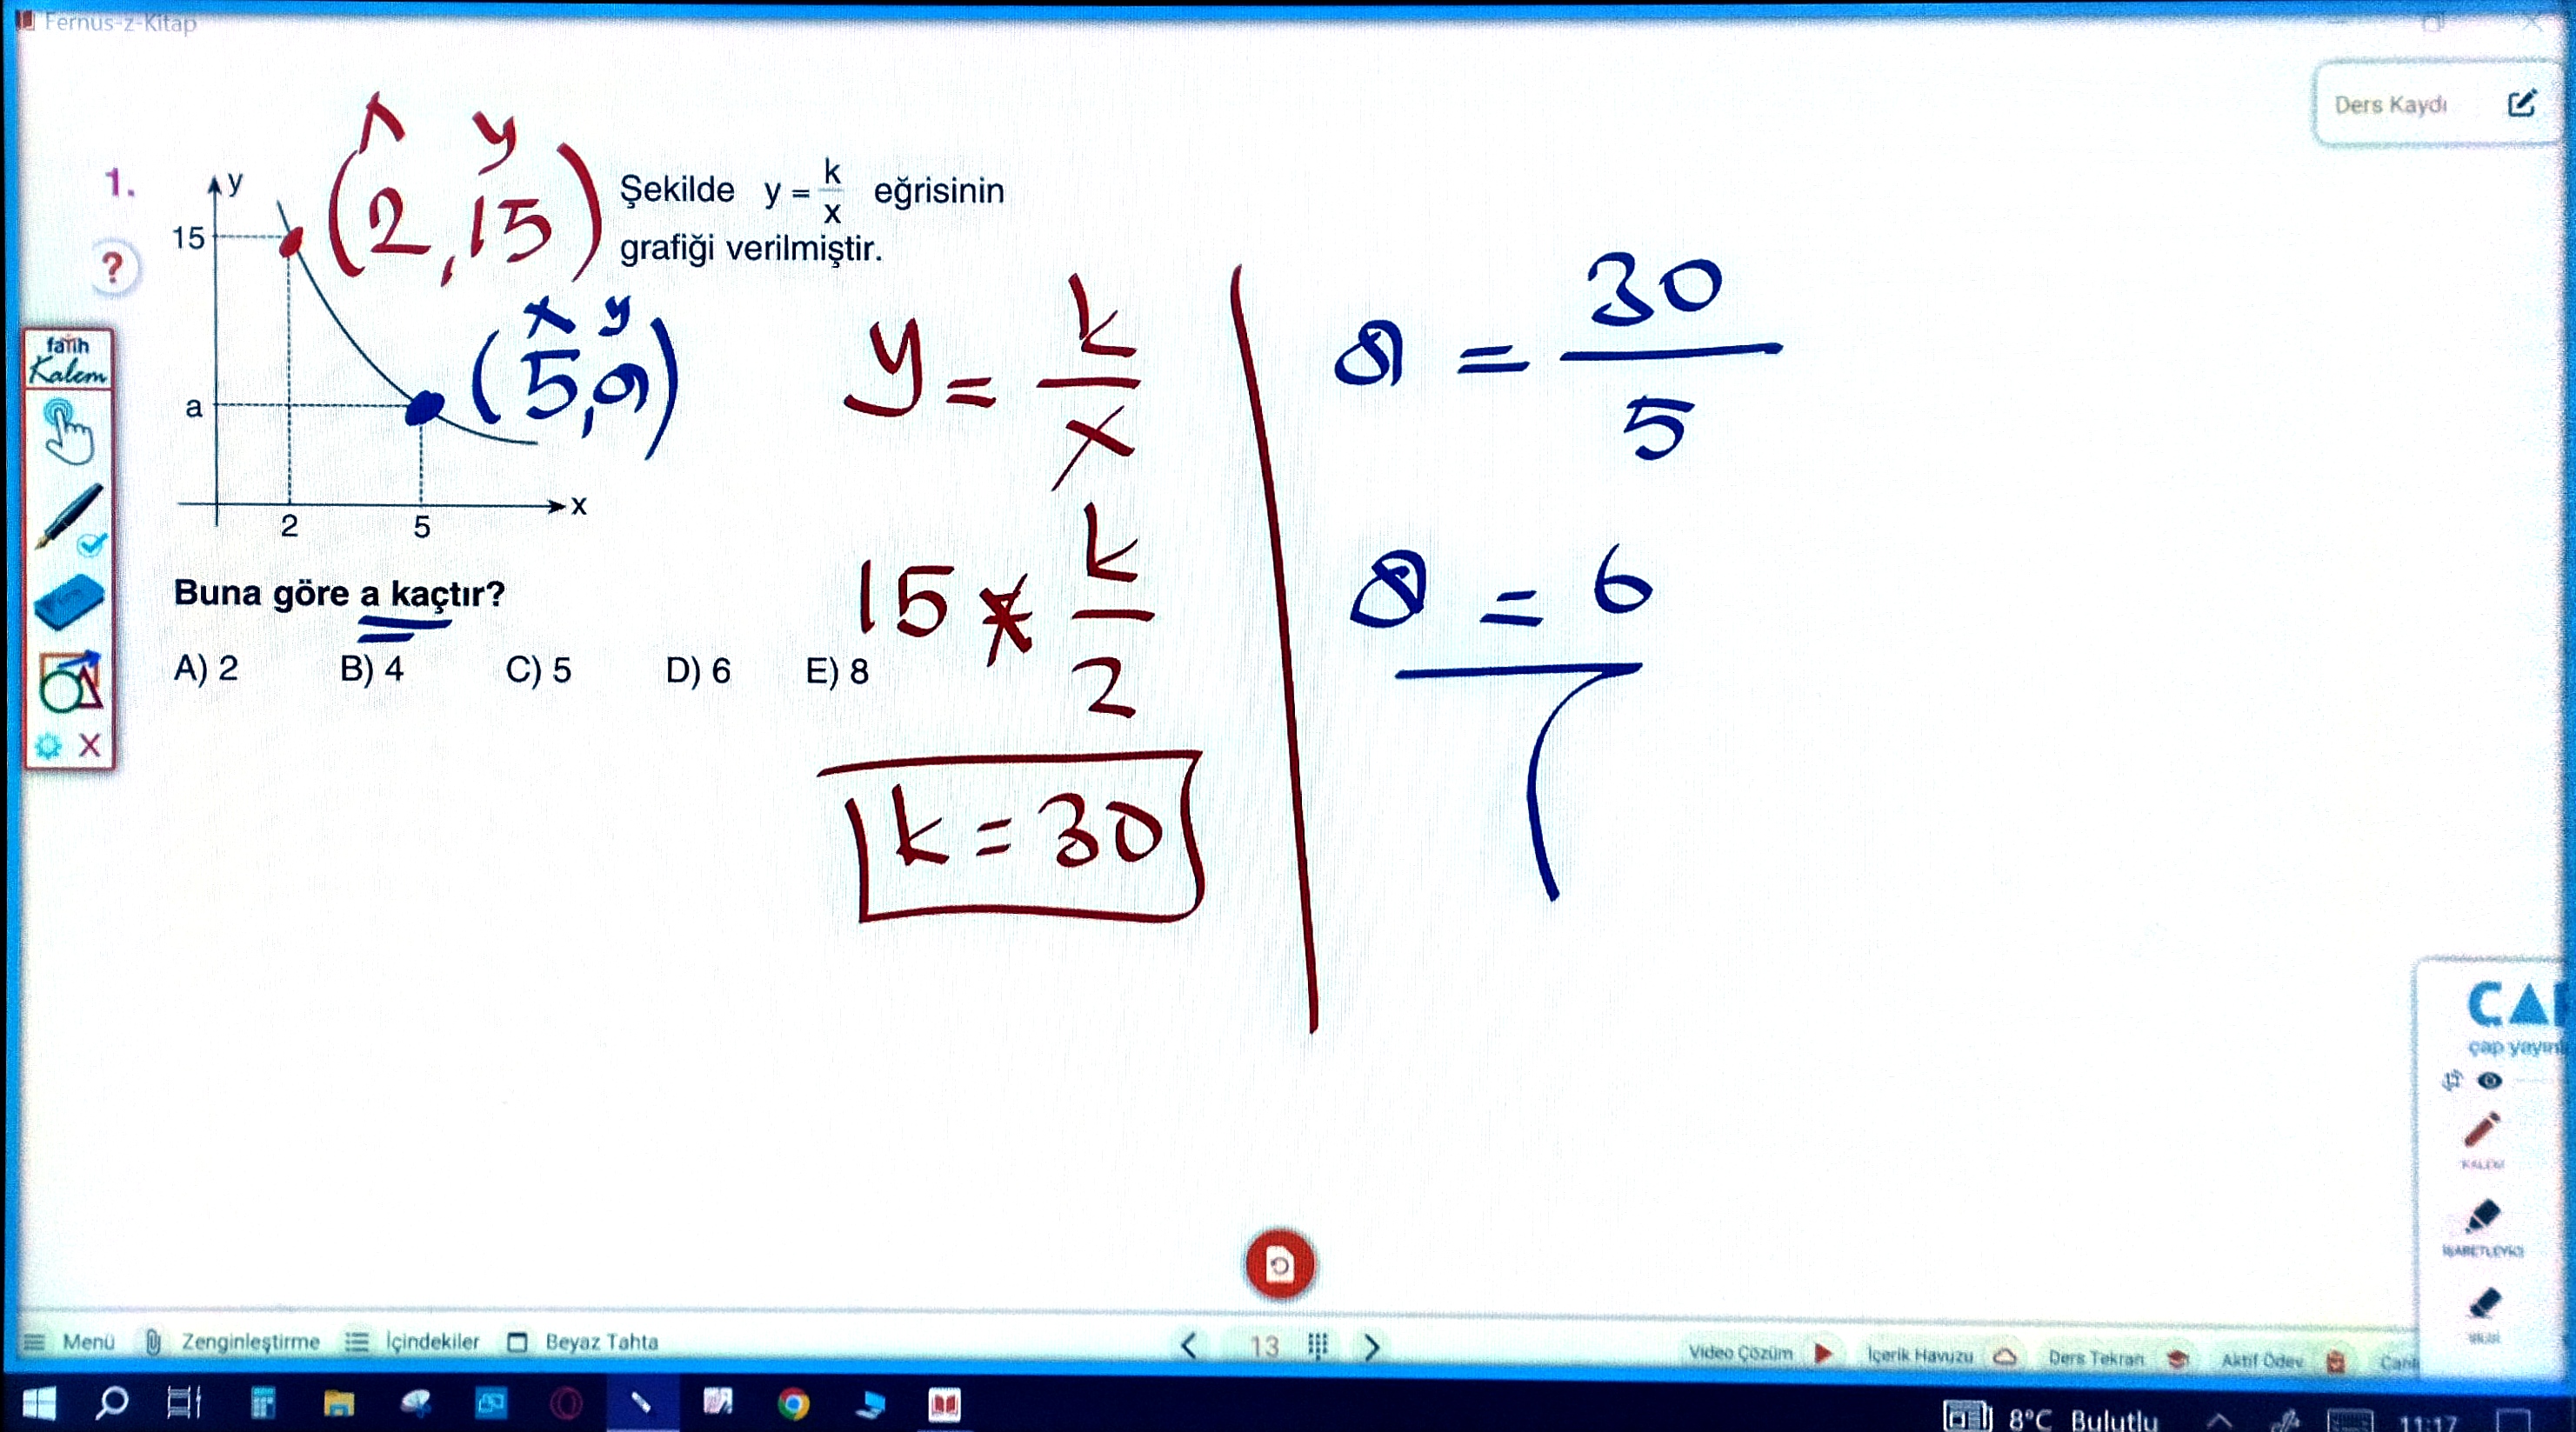 Fernus-z-Kitap
Ders Kaydı
x y
(2,15)
1.
y
15
Şekilde y = k/x eğrisinin
grafiği verilmiştir.
?
x y
(5,a)
a
2 5
x
fatih
Kalem
y = k/x
a = 30/5
Buna göre a kaçtır?
A) 2 B) 4 C) 5 D) 6 E) 8
15 = k/2
a = 6
k = 30
ÇAP
çap yayınl
KALEM
İŞARETLEYİCİ
Menü Zenginleştirme İçindekiler Beyaz Tahta
13
Video Çözüm İçerik Havuzu Ders Tekrarı Aktif Ödev Canlı
8°C Bulutlu
11:17